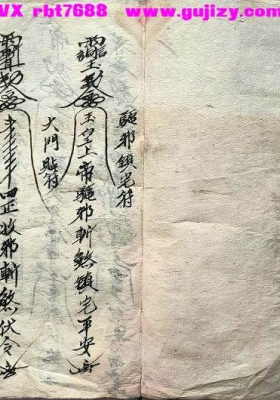 VX rbt7688 www.gujizy.com
駈邪鎮宅符
玉皇上帝駈邪斬煞鎮宅平安
大門貼符
四正收邪斬煞伏令